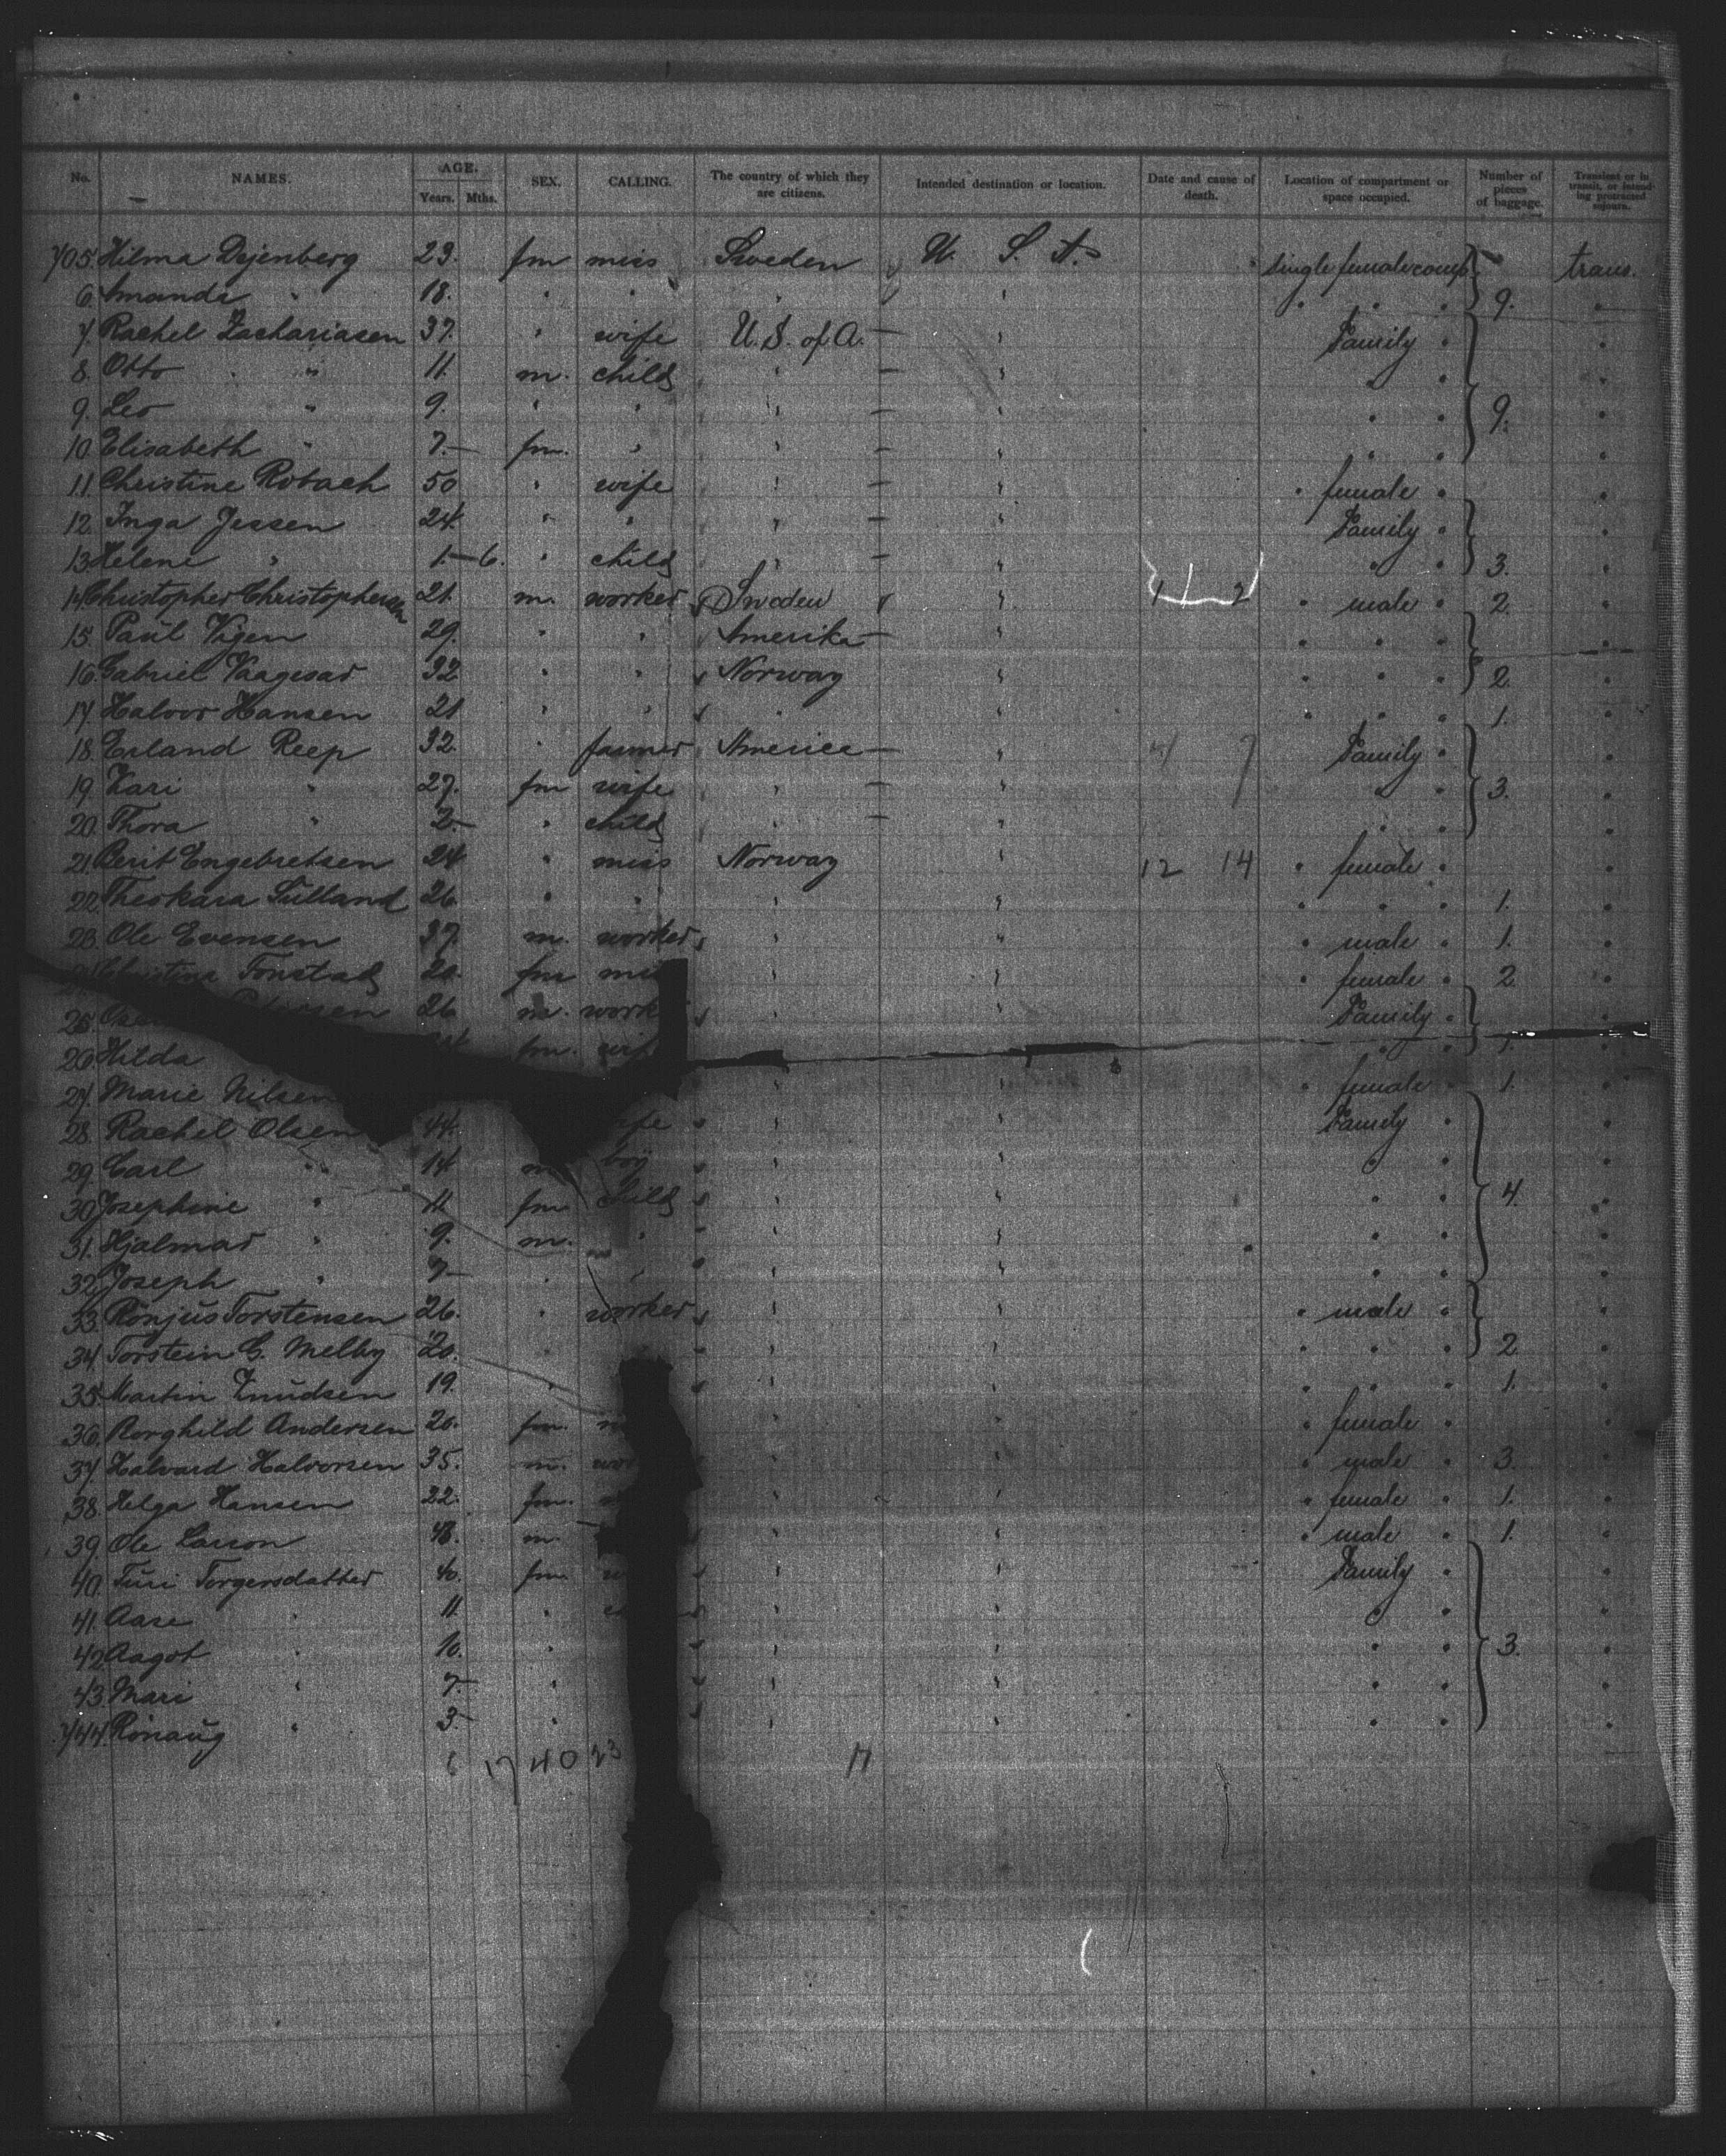 No. NAMES. AGE. Years. Mths. SEX. CALLING. The country of which they are citizens. Intended destination or location. Date and cause of death. Location of compartment or space occupied. Number of pieces of baggage. Transient or in transit, or intending protracted sojourn.
705. Hilma Dejenberg 23. fm miss Sweden U. S. A. single female comp. trans.
6. Amanda " 18. " " " " " " " 9. "
7. Rachel Zachariasen 37. " wife U. S. of A. — " Family " "
8. Otto " 11. m. child " — " " " "
9. Leo " 9. " " " — " " " 9. "
10. Elisabeth " 7. — fm. " " — " " " "
11. Christine Robach 50 " wife " — " " female " "
12. Inga Jessen 24. " " " — " Family " "
13. Helene " 1. — 6. " child " — " " " 3. "
14. Christopher Christophersen 21. m. worker Sweden " 1 2 " male " 2. "
15. Paul Vigen 29. " " Amerika — " " " " "
16. Gabriel Vaagesar 32 " " Norway " " " " 2. "
17. Halvor Hansen 21 " " " " " " " 1. "
18. Erland Reep 32. " farmer America — " Family " "
19. Kari " 27. fm wife " — " " " 3. "
20. Thora " 2. — " child " — " " " "
21. Berit Engebretsen 24 " miss Norway " 12 14 " female " "
22. Theokara Sulland 26. " " " " " " " 1. "
23. Ole Evensen 37. m. worker " " " male " 1. "
Tonstad 20. fm " " " female " 2. "
25. 26 m. work " " Family " "
26. Hilda fm. " " " 1. "
27. Marie Nilsen " " " female " 1. "
28. Rachel Olsen 44. " " Family " "
29. Carl " 14. m boy " " " " "
30. Josephine " 11. fm child " " " " 4. "
31. Hjalmar " 9. m. " " " " " "
32. Joseph " 7 — " " " " " " "
33. Ronjus Torstensen 26. " worker " " " male " "
34. Torstein G. Melby 20. " " " " " " 2. "
35. Martin Knudsen 19. " " " " " " 1. "
36. Borghild Andersen 20. fm. " " " female " "
37. Halvard Halvorsen 35. m. " " " male " 3. "
38. Helga Hansen 22. fm. " " " female " 1. "
39. Ole Larson 48. m. " " " male " 1. "
40. Turi Torgersdatter 40. fm. " " Family " "
41. Aase " 11. " " " " " "
42. Aagot " 10. " " " " " 3. "
43. Mari " 7 — " " " " " "
744. Ronaug " 3 — " " " " " "
6 17 40 23 17